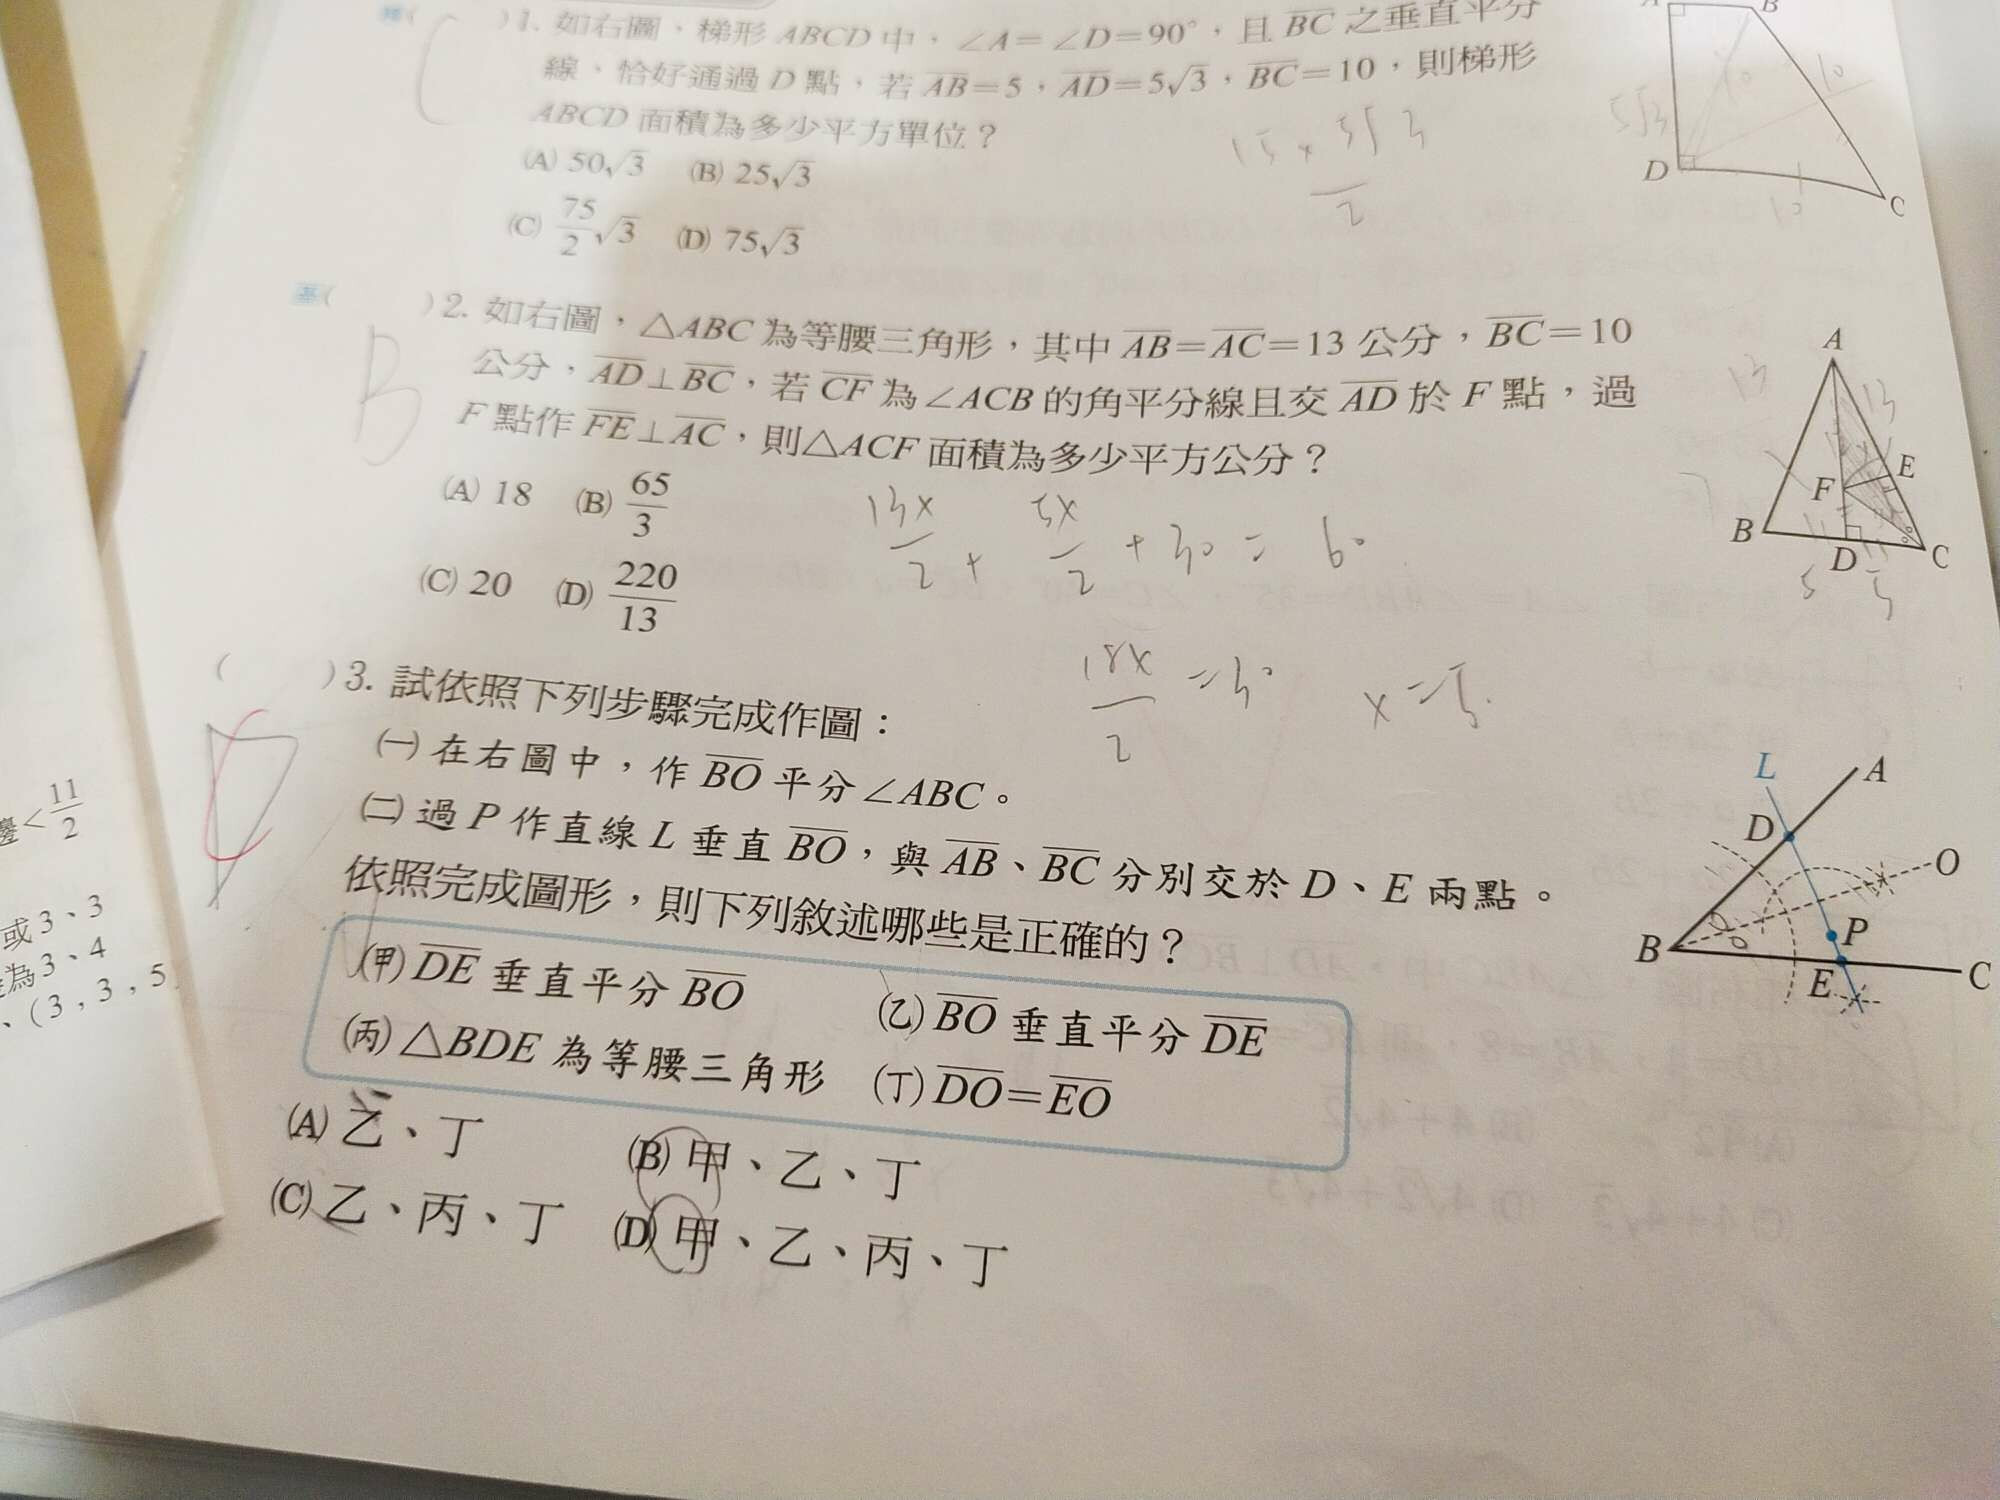 ( )1. 如右圖，梯形 ABCD 中，∠A=∠D=90°，且 BC 之垂直平分
線，恰好通過 D 點，若 AB=5，AD=5√3，BC=10，則梯形
ABCD 面積為多少平方單位？
(A) 50√3 (B) 25√3
(C) 75/2 √3 (D) 75√3
C
15 × 5√3
2
B
5√3
10
10
10
D
C
基( )2. 如右圖，△ABC 為等腰三角形，其中 AB=AC=13 公分，BC=10
公分，AD⊥BC，若 CF 為∠ACB 的角平分線且交 AD 於 F 點，過
F 點作 FE⊥AC，則△ACF 面積為多少平方公分？
(A) 18 (B) 65/3
(C) 20 (D) 220/13
B
13x/2 + 5x/2 + 30 = 60
18x/2 = 30 x=5
A
13
13
E
F
B
D
C
5
5
( )3. 試依照下列步驟完成作圖：
(一) 在右圖中，作 BO 平分∠ABC。
(二) 過 P 作直線 L 垂直 BO，與 AB、BC 分別交於 D、E 兩點。
依照完成圖形，則下列敘述哪些是正確的？
(甲) DE 垂直平分 BO (乙) BO 垂直平分 DE
(丙) △BDE 為等腰三角形 (丁) DO=EO
(A) 乙、丁 (B) 甲、乙、丁
(C) 乙、丙、丁 (D) 甲、乙、丙、丁
C
L
A
D
O
P
B
E
C
邊<11/2
或 3、3
為 3、4
、(3,3,5